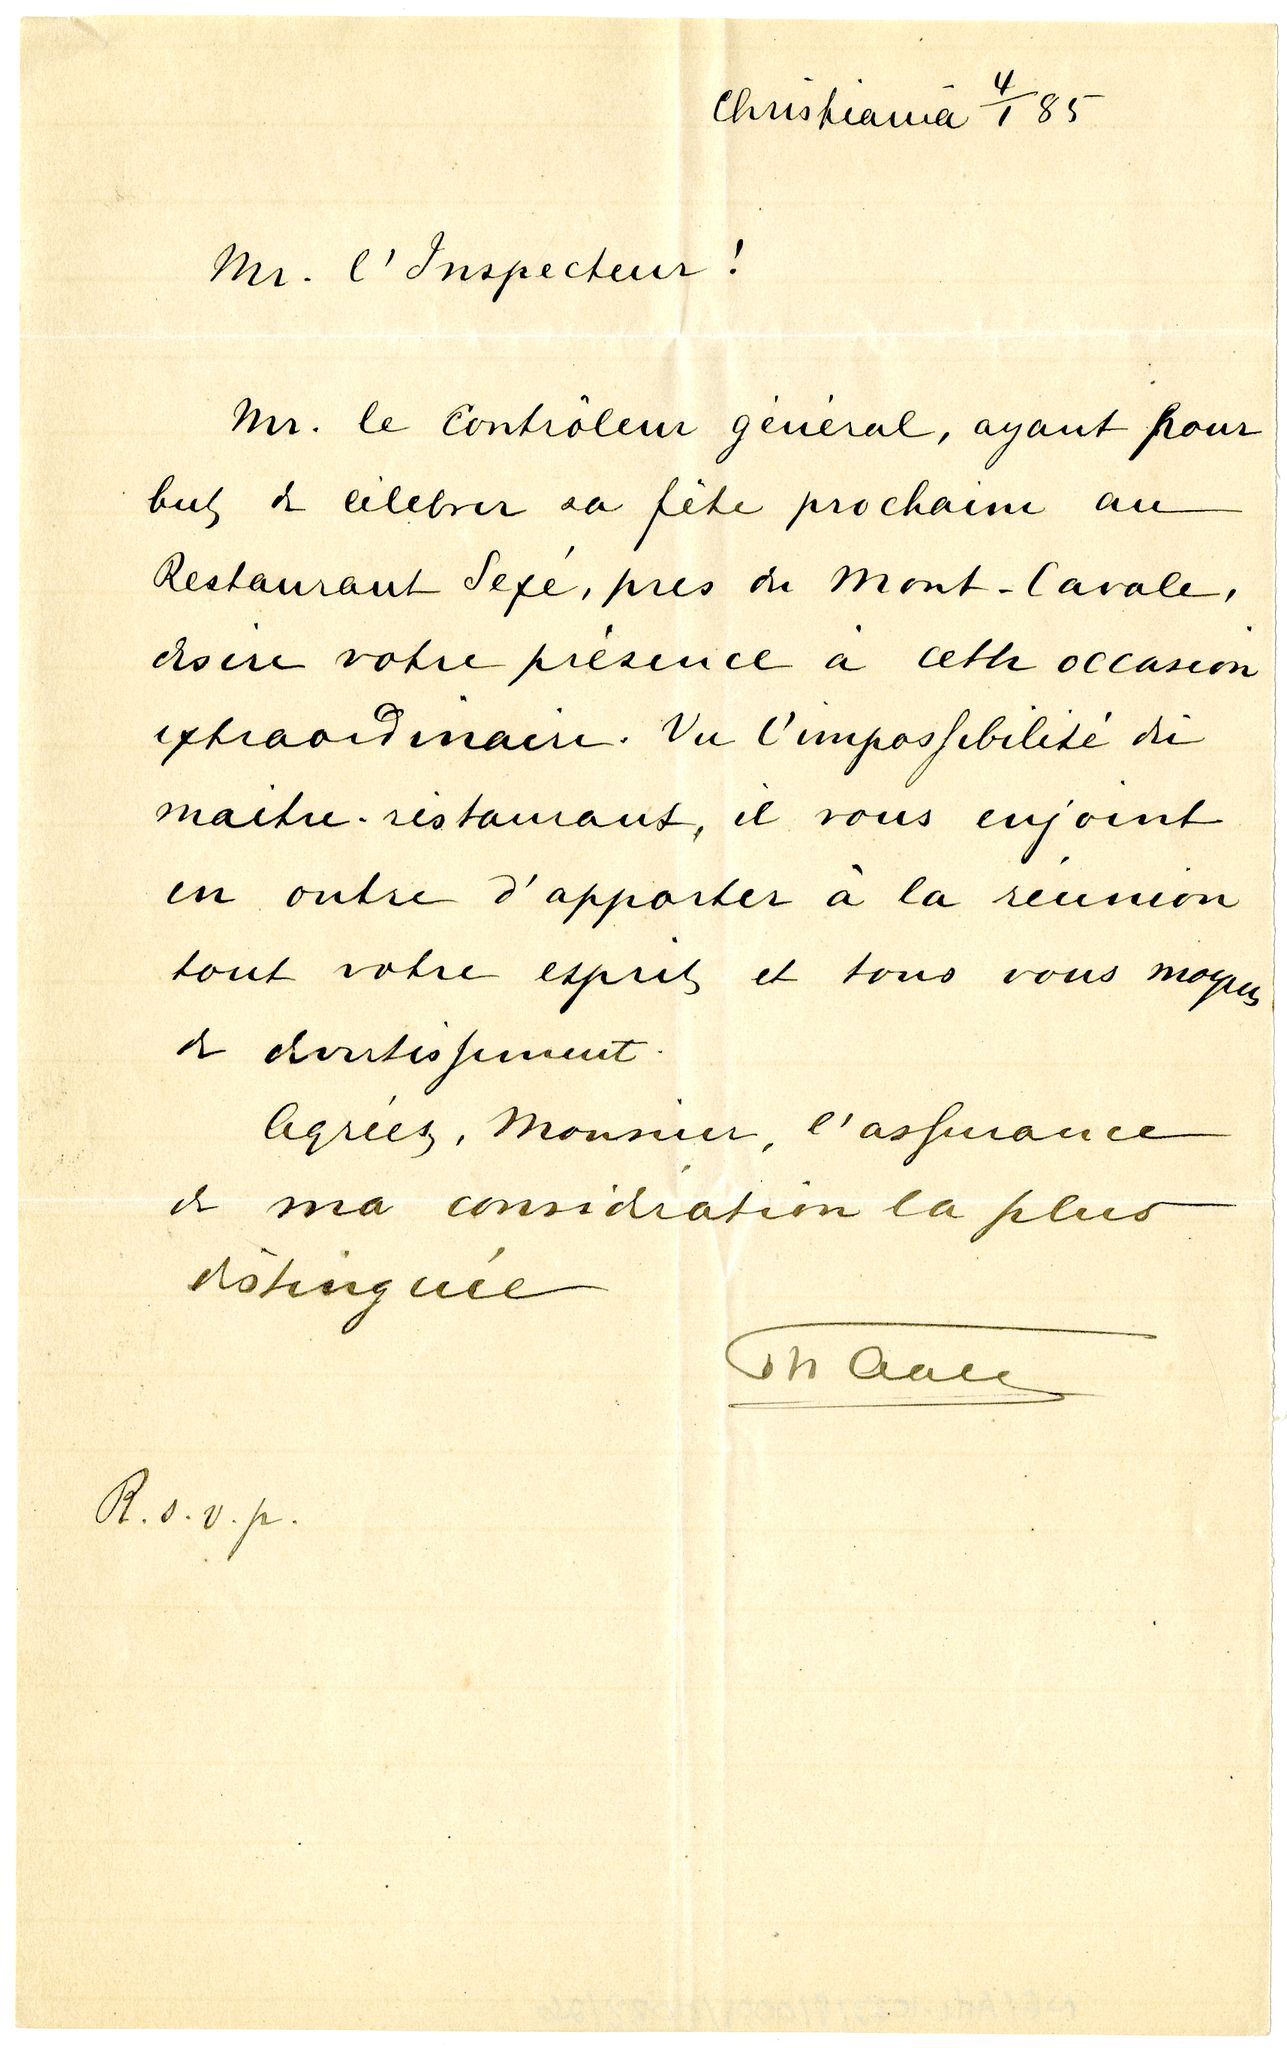 Christiania 4/1 85
Mr. l'Inspecteur!
Mr. le Contrôleur général, ayant pour
but de célebrer sa fête prochaine au
Restaurant Sexé, pres du Mont-Cavale,
desire votre présence à cette occasion
extraordinaire. Vu l'impossibilité du
maitre-restaurant, il vous enjoint
en outre d'apporter à la réunion
tout votre esprit et tous vous moyens
de divertissement.
Agréez, Monsieur, l'assurance
de ma considération la plus
distinguée
Th
R. s. v. p.